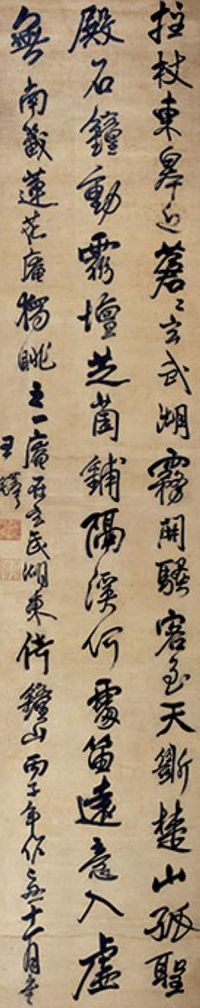 拄杖東皋近蒼〻玄武湖霧開騷客至天斷楚山孤聖
殿石鐘動靈壇芝菌鋪隔溪何處笛遠意入虛
無 南蓮花庵獨眺之一庵在玄武湖東倚鐘山丙子年作十一月書
王鐸